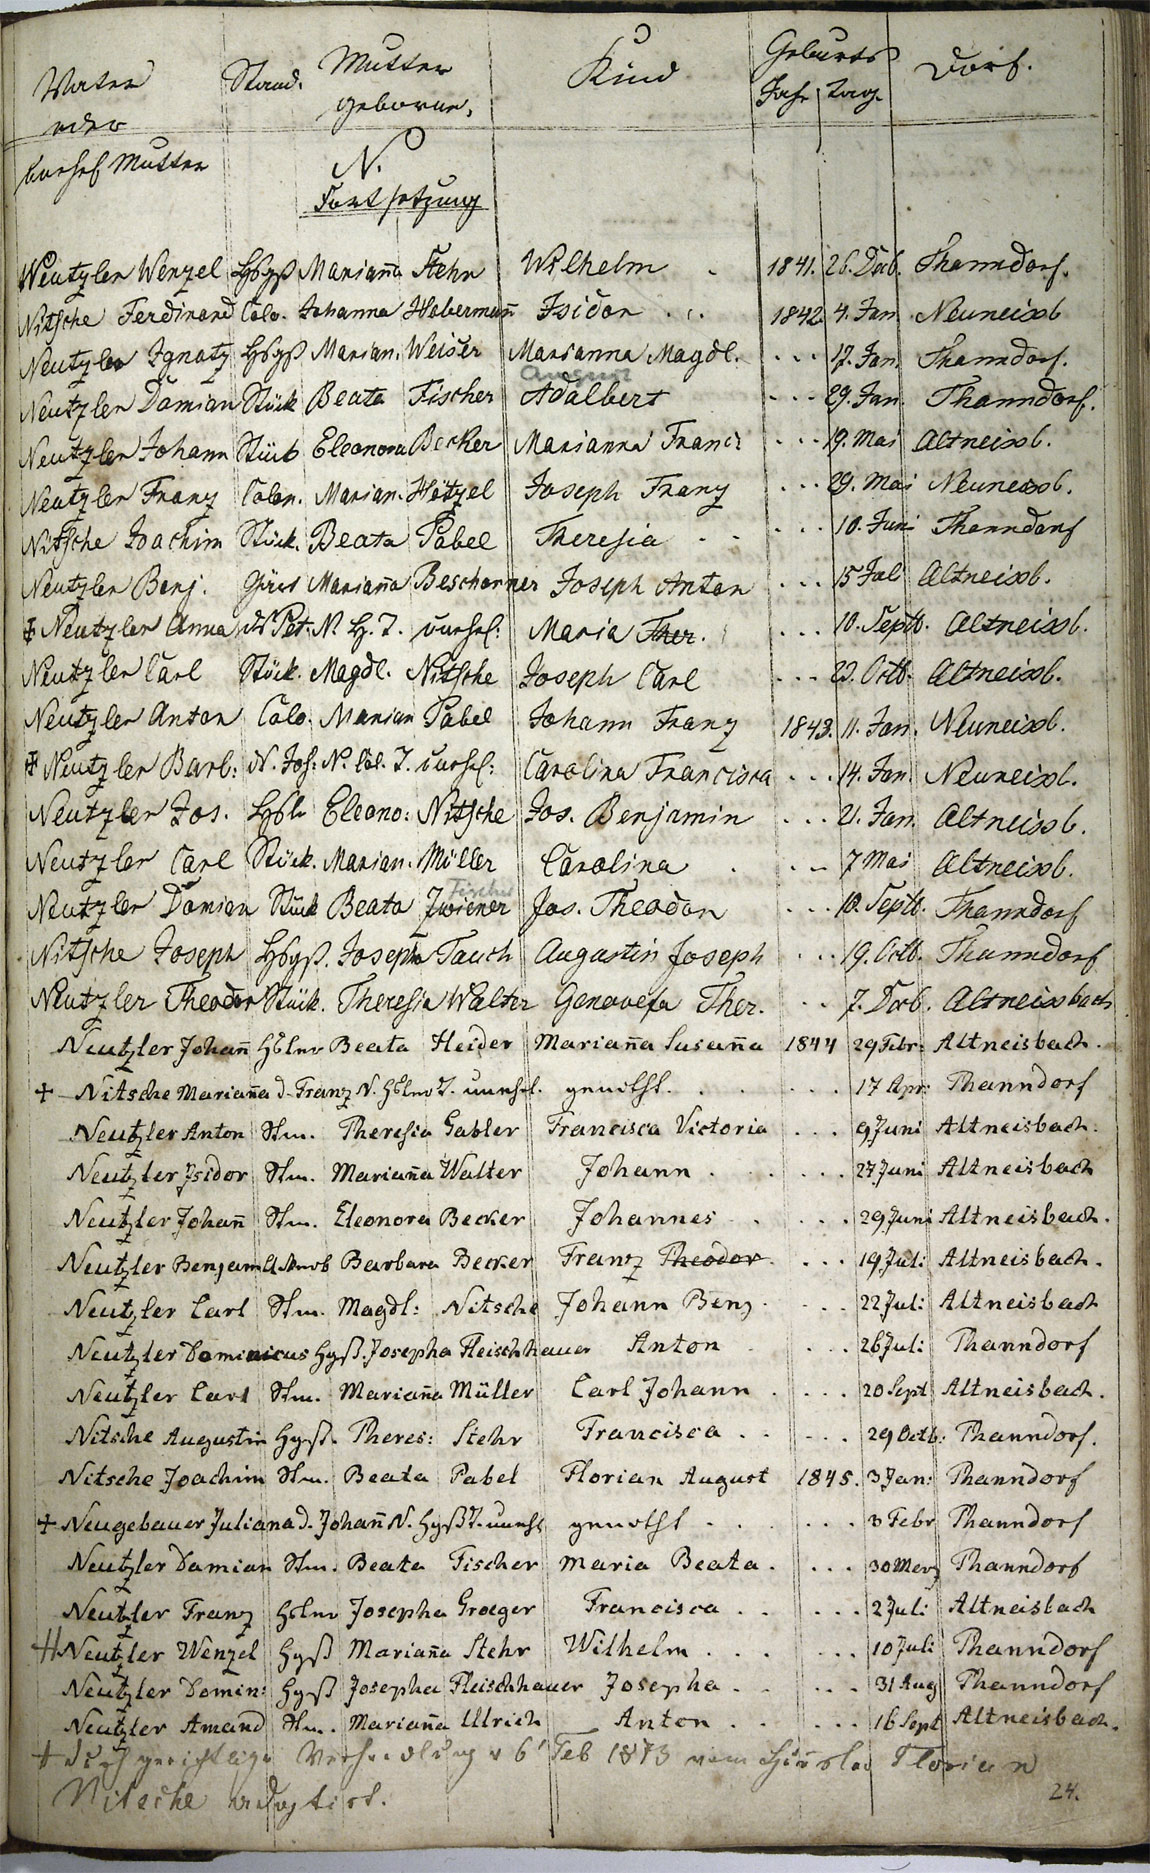 Vater Stand. Mutter Kind Geburts Dorf.
oder geborne, Jahr Tag.
unehel Mutter N.
Fortsetzung
Neutzler Wenzel Hsgß Mariaña Stehr Wilhelm . 1841. 26. Dcb. Thanndorf.
Nitsche Ferdinand Colo. Johanna Habermañ Isidor . . 1842 4. Jan. Neuneissb
Neutzler Ignatz Hsgß Marian. Weiser Marianna Magdl. . . . 17. Jan. Thanndorf.
August
Neutzler Damian Stück Beata Fischer Adalbert . . . 29. Jan. Thanndorf.
Neutzler Johann Stück Eleonora Becker Marianna Franc: . . . 19. Mai Altneissb.
Neutzler Franz Colon. Marian. Hetzel Joseph Franz . . . 29. Mai Neuneissb.
Nitsche Joachim Stück. Beata Pabel Theresia . . . . . 10. Juni Thanndorf
Neutzler Benj. Mariaña Beschorner Joseph Anton . . . 15 Jul Altneissb.
‡ Neutzler Anna d. Pet. N. H. T. unehel: Maria Ther. . . . 10. Septb. Altneissb.
Neutzler Carl Stück. Magdl. Nitsche Joseph Carl . . . 23. Octb. Altneissb.
Neutzler Anton Colo. Marian Pabel Johann Franz 1843. 11. Jan. Neuneissb.
‡ Neutzler Barb: d. Jos: N. Col. T. unehel: Carolina Francisca . . . 14. Jan. Neuneissb.
Neutzler Jos. Hslr Eleono: Nitsche Jos. Benjamin . . . 21. Jan. Altneissb.
Neutzler Carl Stück. Marian. Müller Carolina . . . 7 Mai Altneissb.
Fischer
Neutzler Damian Stück Beata Zwiener Jos. Theodor . . . 10. Septb. Thanndorf
Nitsche Joseph Hsgß. Josepha Tauch Augustin Joseph . . . 19. Octb. Thanndorf
Neutzler Theodor Stück. Theresia Walter Genovefa Ther. . . 7. Dcb. Altneissbach
Neutzler Johañ Hslnr Beata Heider Mariaña Susaña 1844 29 Febr: Altneisbach.
+ Nitsche Mariaña d. Franz N. Hslnr T. unehl. genothf. . . . . 17 Apr: Thanndorf
Neutzler Anton Stm. Theresia Gabler Francisca Victoria . . . 9 Juni Altneisbach.
Neutzler Isidor Stm. Mariaña Walter Johann . . . . 27 Juni Altneisbach
Neutzler Johañ Stm. Eleonora Becker Johannes . . . . 29 Juni Altneisbach.
Neutzler Benjam Barbara Becker Franz Theodor . . . 19 Juli Altneisbach.
Neutzler Carl Stm. Magdl: Nitsche Johann Benj . . . 22 Juli Altneisbach
Neutzler Dominicus Hgß. Josepha Fleischhauer Anton . . . 26 Juli Thanndorf
Neutzler Carl Stm. Mariaña Müller Carl Johann . . . . 20 Sept Altneisbach.
Nitsche Augustin Hgß. Theres: Stehr Francisca . . . . . 29 Octb: Thanndorf.
Nitsche Joachim Stm. Beata Pabel Florian August 1845. 3 Jan: Thanndorf
+ Neugebauer Juliana d. Johañ N. Hgß T. unehl genothf . . . . 3 Febr Thanndorf
Neutzler Damian Stm. Beata Fischer Maria Beata . . . . 30 Merz Thanndorf
Neutzler Franz Hslnr Josepha Groeger Francisca . . . . . 2 Juli Altneisbach
++ Neutzler Wenzel Hgß Mariaña Stehr Wilhelm . . . . . . 10 Juli Thanndorf
Neutzler Domin: Hgß Josepha Fleischhauer Josepha . . . . 31 Aug Thanndorf
Neutzler Amand Stm. Mariaña Ulrich Anton . . . . . 16 Sept Altneisbach.
+ Durch gerichtliche Verhandlung v 6' Feb 1873 vom Florian
Nitsche adoptirt.
24.